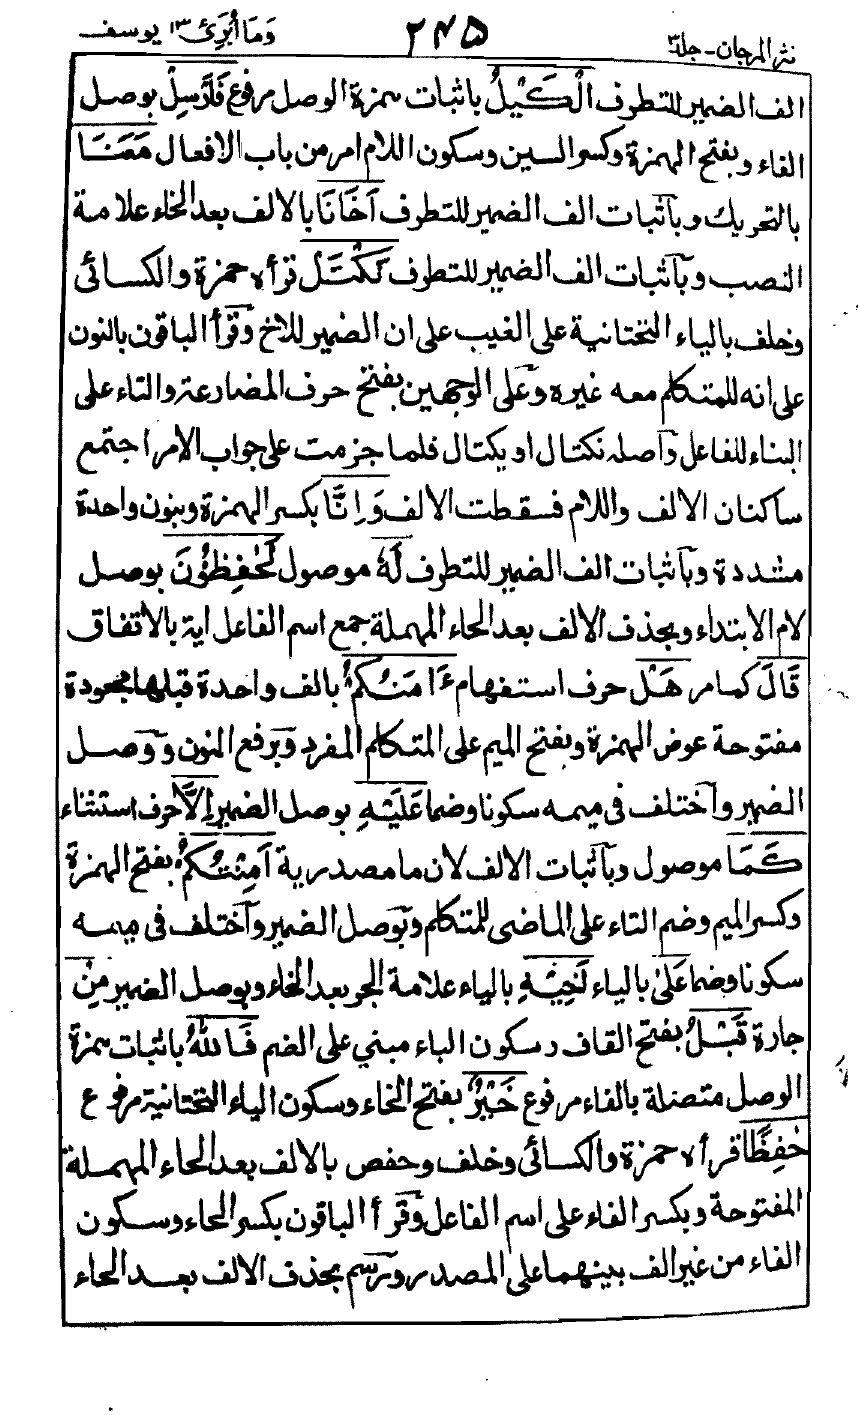 نثر المرجان - جلد ٣ ٢٤٥ وَمَا أُبَرِّئُ ١٣ يوسف
الف الضمير للتطرف الْكَيْلُ باثبات همزة الوصل مرفوع فَاَرْسِلْ بوصل
الفاء وبفتح الهمزة وكسر السين وسكون اللام امر من باب الافعال مَعَنَا
بالتحريك وبآثبات الف الضمير للتطرف اَخَانَا بالالف بعد الخاء علامة
النصب وبآثبات الف الضمير للتطرف نَكْتَلْ قرأه حمزة والكسائى
وخلف بالياء التحتانية على الغيب على ان الضمير للاخ وقرأ الباقون بالنون
على انه للمتكلم معه غيره وعلى الوجهين بفتح حرف المضارعة والتاء على
البناء للفاعل وآصله نكتال او يكتال فلما جزمت على جواب الامر اجتمع
ساكنان الالف واللام فسقطت الالف وَاِنَّا بكسر الهمزة وبنون واحدة
مشددة وبآثبات الف الضمير للتطرف لَهٗ موصول لَحٰفِظُوْنَ بوصل
لام الابتداء وبحذف الالف بعد الحاء المهملة جمع اسم الفاعل اية بالاتفاق
قَالَ كما مر هَلْ حرف استفهام ءَامَنُكُمْ بالف واحدة قبلها مجعودة
مفتوحة عوض الهمزة وبفتح الميم على المتكلم المفرد وبرفع النون ووصل
الضمير وآختلف فى ميمه سكونا وضما عَلَيْهِ بوصل الضمير اِلَّا حرف استثناء
كَمَا موصول وبآثبات الالف لان ما مصدرية اَمِنْتُكُمْ بفتح الهمزة
وكسر الميم وضم التاء على الماضى للمتكلم وبوصل الضمير وآختلف فى ميمه
سكونا وضما عَلىٰ بالياء اَخِيْهِ بالياء علامة الجر بعد الخاء وبوصل الضمير مِنْ
جارة قَبْلُ بفتح القاف وسكون الباء مبني على الضم فَاللّٰهُ باثبات همزة
الوصل متصلة بالفاء مرفوع خَيْرٌ بفتح الخاء وسكون الياء التحتانية مرفوع
حٰفِظًا قرأه حمزة والكسائى وخلف وحفص بالالف بعد الحاء المهملة
المفتوحة وبكسر الفاء على اسم الفاعل وقرأ الباقون بكسر الحاء وسكون
الفاء من غير الف بينهما على المصدر ورسم بحذف الالف بعد الحاء